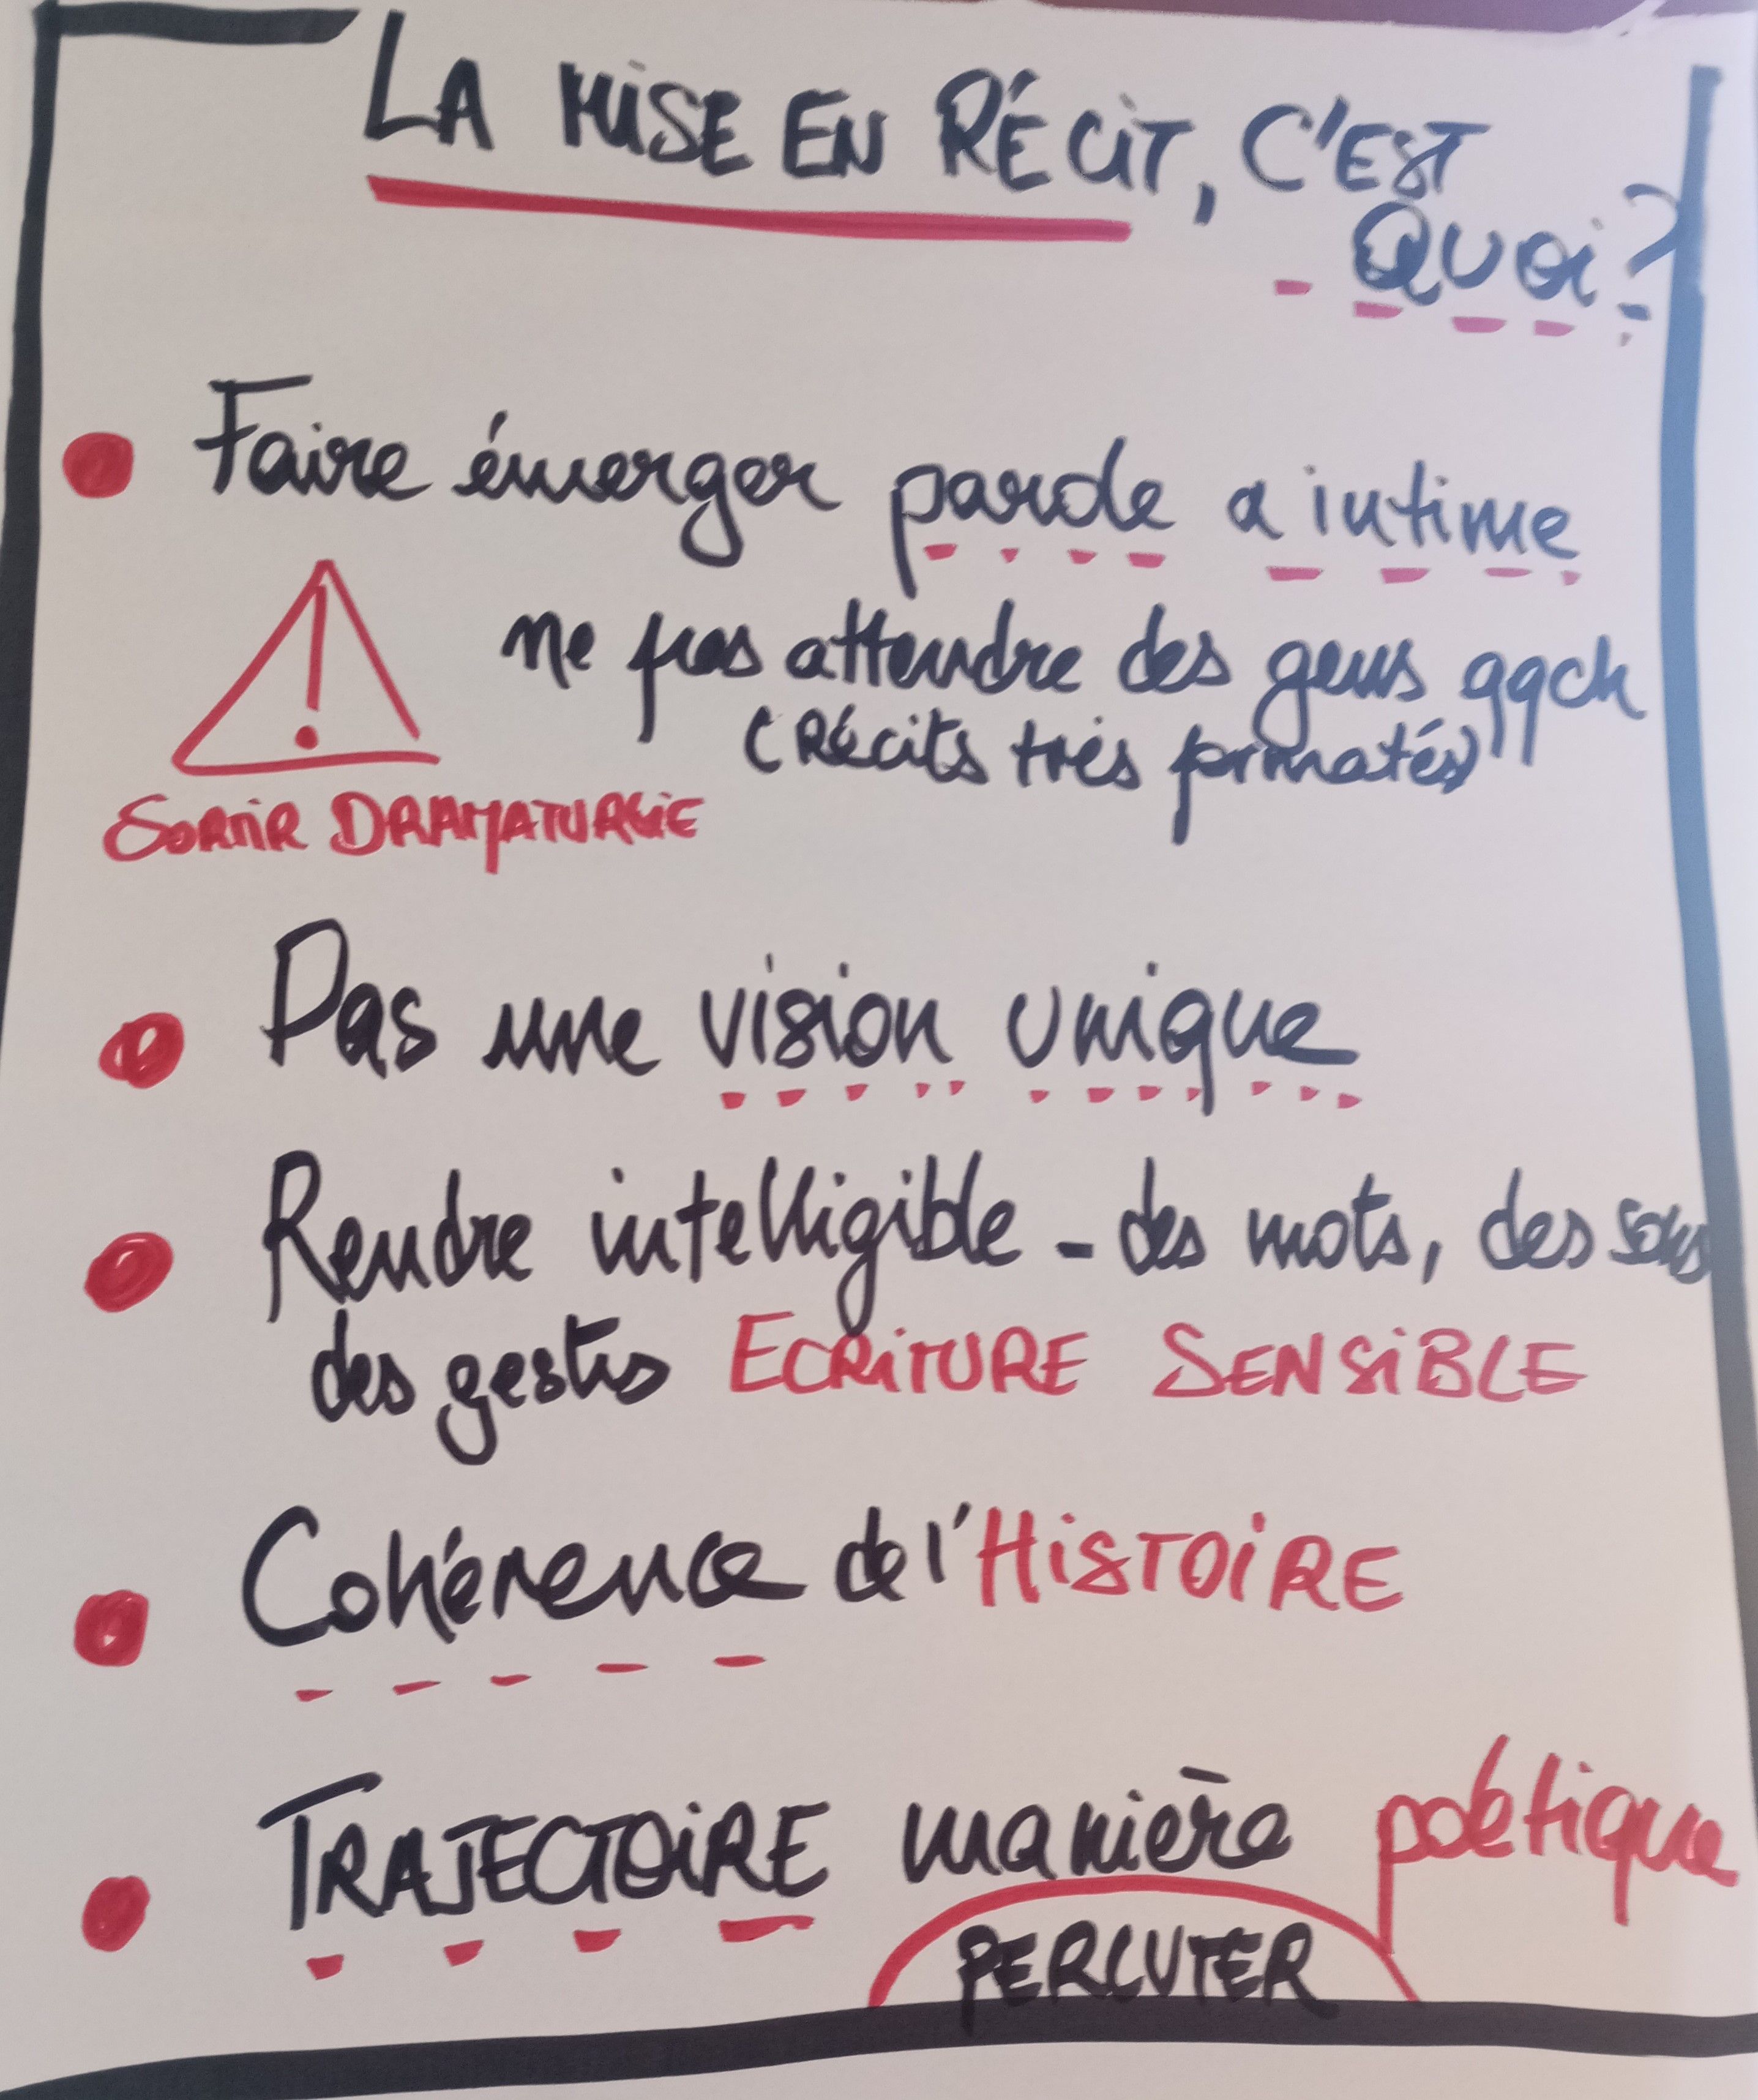 LA MISE EN RÉCIT, C'EST
QUOI?
Faire émerger parole a intime
ne pas attendre des gens qqch
(Récits très formatés)
SORTIR DRAMATURGIE
Pas une vision unique
Rendre intelligible - des mots, des sons
des gestes ECRITURE SENSIBLE
Cohérence de l'HISTOIRE
TRAJECTOIRE manière poétique
PERCUTER